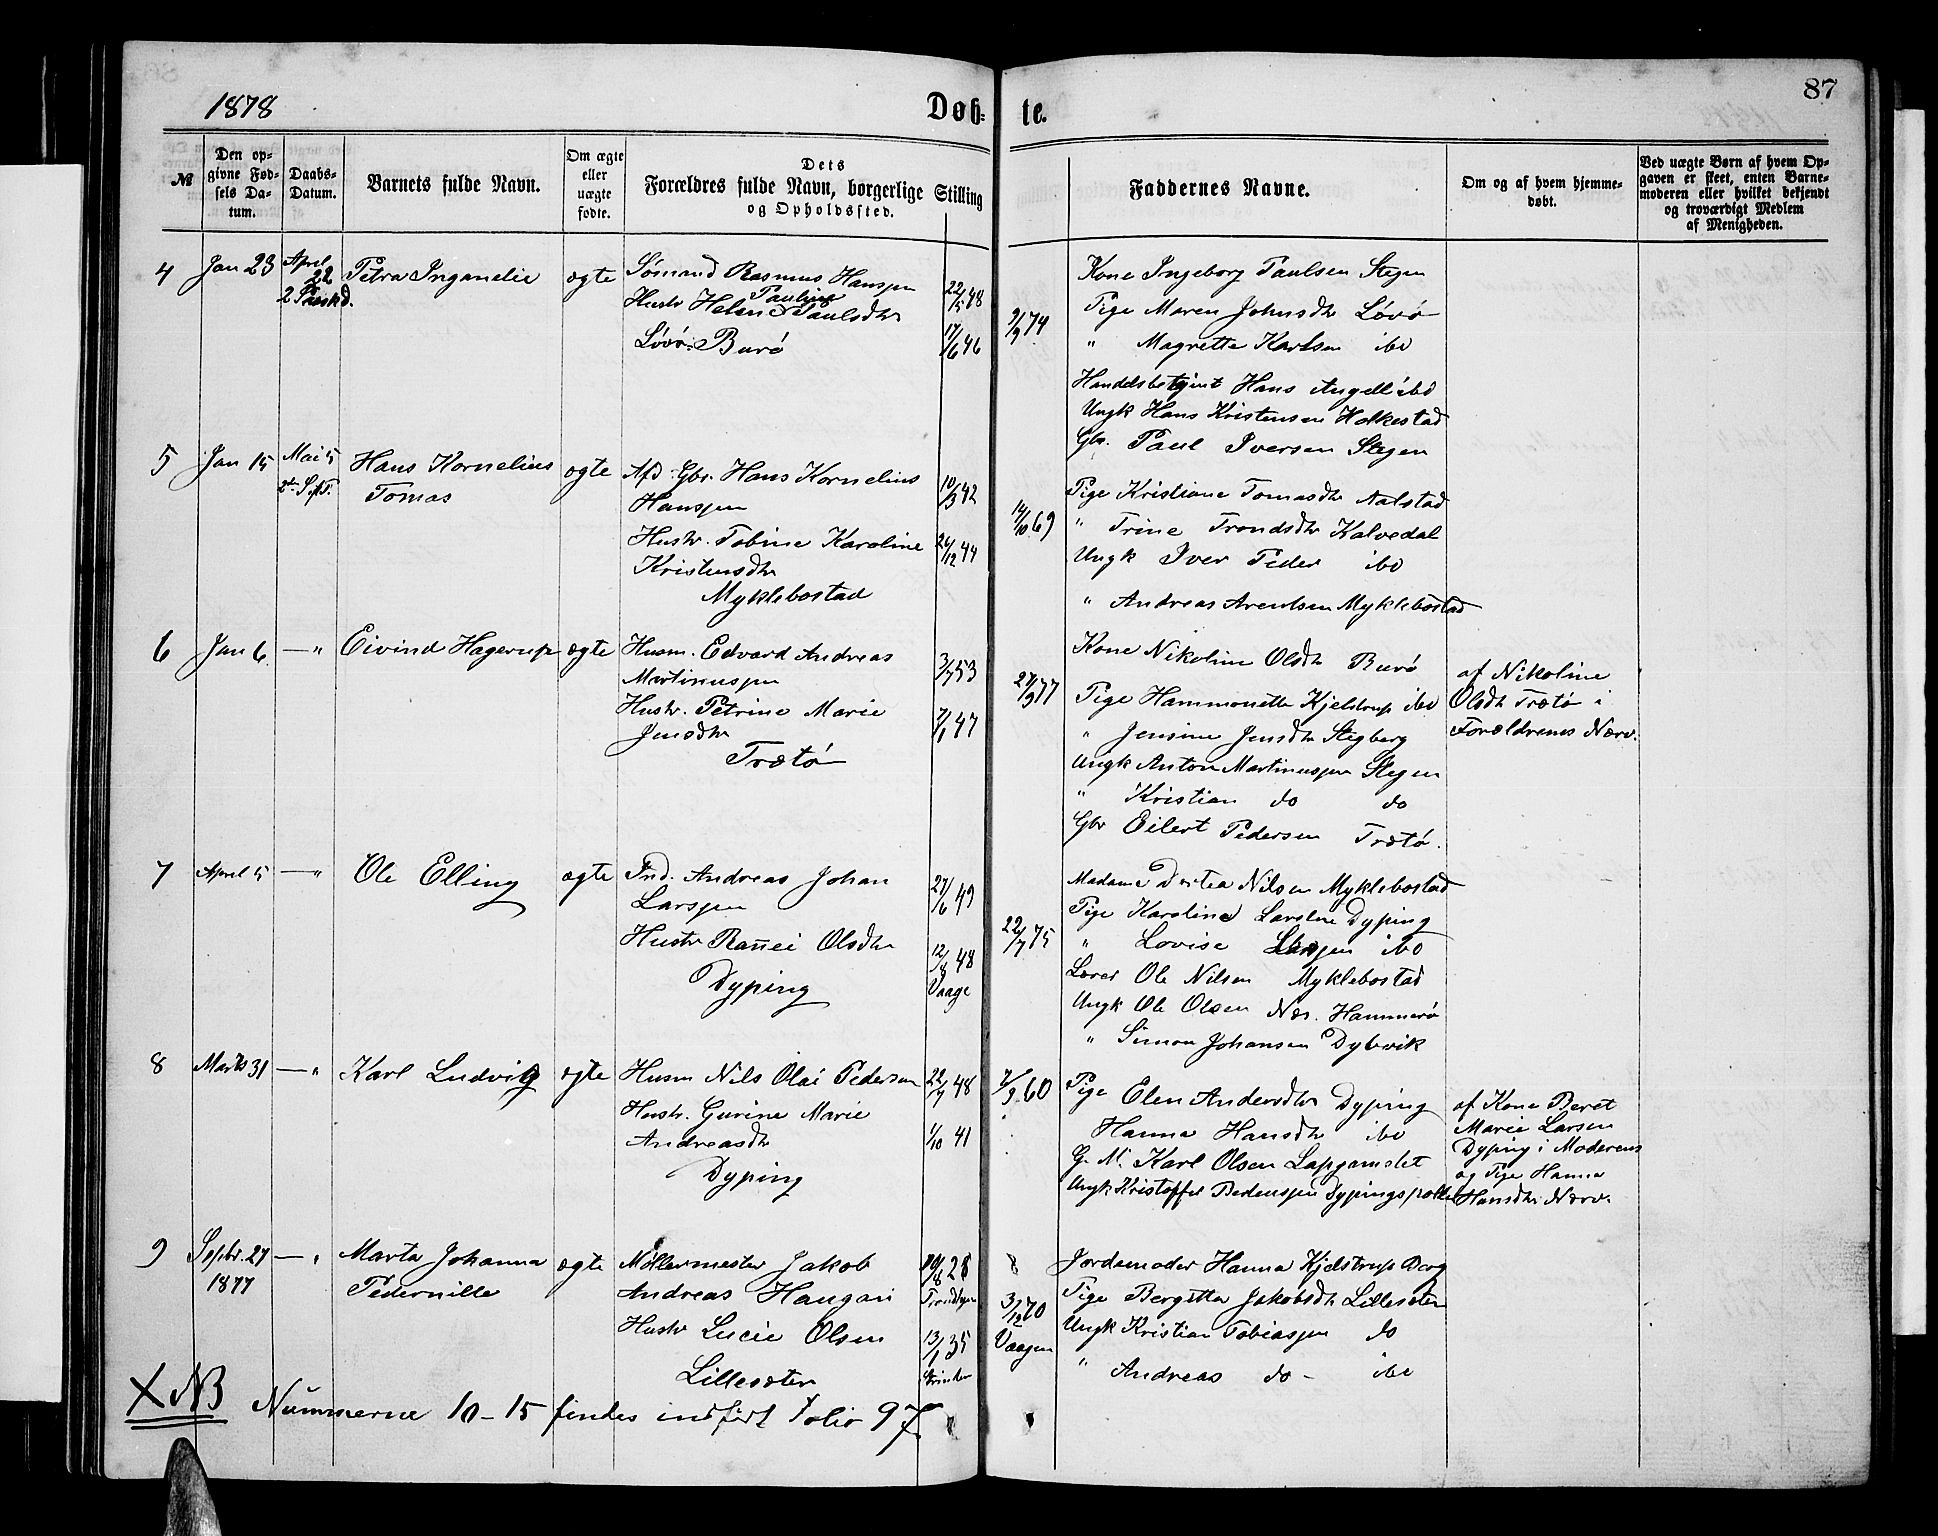 1878
Døb-
te.
87
№
Den op-
givne Fød-
sels Da-
tum.
Daabs-
Datum.
Barnets fulde Navn.
Om ægte
eller
uægte
fødte.
Dets
Forældres fulde Navn, borgerlige Stilling
og Opholdssted.
Faddernes Navne.
Om og af hvem hjemme-
døbt.
Ved uægte Børn af hvem Op-
gaven er skeet, enten Barne-
moderen eller hvilket bekjendt
og troværdigt Medlem
af Menigheden.
4
Jan 23
April
22
2 Paaskd.
Petra Inganelie
ægte
Sømand Rasmus Hansen
Pauline
Hustr Helene Paulsdtr
Løvø: Burø
22/5 48
17/6 46
9/9 74
Kone Ingeborg Paulsen Stegen
Pige Maren Johnsdtr Løvø
" Magrette Karlsen ibd
Handelsbetjent Hans Angell ibd
Ungk Hans Kristensen Holkestad
Gbr. Paul Iversen Stegen
5
Jan 15
Mai 5
2 S. f. P.
Hans Kornelius
Tomas
ægte
Afd. Gbr. Hans Kornelius
Hansen
Hustr. Tobine Karoline
Kristensdtr
Myklebostad
10/3 42
26/12 44
14/10 69
Pige Kristiane Tomasdtr Aalstad
" Trine Trondsdtr Kalvedal
Ungk Iver Peder ibd
" Andreas Arentsen Myklebostad
6
Jan 6
— "
Eivind Hagerup
ægte
Husm. Edvard Andreas
Martinussen
Hustr. Petrine Marie
Jensdtr
Trætø
3/7 53
7/1 47
27/9 77
Kone Nikoline Olsdtr Burø
Pige Hammonette Kjelstrup ibd
" Jensine Jensdtr Stegberg
Ungk Anton Martinussen Stegen
" Kristian do do
Gbr Eilert Pedersen Trætø.
af Nikoline
Olsdtr Trætø i
Forældrenes Nærv.
7
April 5
— "
Ole Elling
ægte
Ind. Andreas Johan
Larssen
Hustr Rannei Olsdtr
Dyping
27/6 49
12/8 48
Vaage
22/7 75
Madame Dortea Nilsen Myklebostad
Pige Karoline Larsen Dyping
" Lovise Larssen ibd
Lærer Ole Nilsen Myklebostad
Ungk Ole Olsen Næs. Hammerø
" Simon Johansen Dybvik
8
Marts 31
— "
Karl Ludvig
ægte
Husm Nils Olai Pedersen
Hustr. Gurine Marie
Andreasdtr
Dyping
22/7 48
1/10 41
7/9 60
Pige Elen Andersdtr Dyping
Hanna Hansdtr ibd
G. M. Karl Olsen Lapgamslet
Ungk Kristoffer Pedersen Dypingspollen
af Kone Beret
Marie Larsen
Dyping i Moderens
og Pige Hanna
Hansdtr Nærv.
9
Septbr. 27
1877
— "
Marta Johanna
Pedernille
ægte
Møllermester Jakob
Andreas Haugan
Hustr Lucie Olsen
Lillesæter
28
Trondhjem
13/1 35
Strinden
3/12 70
Vaagen
Jordemoder Hanna Kjelstrup Borg
Pige Bergitta Jakobsdtr Lillesæter
Ungk Kristian Tobiassen do
" Andreas do - ibd
X NB Nummerne 10-15 findes indført Folio 97